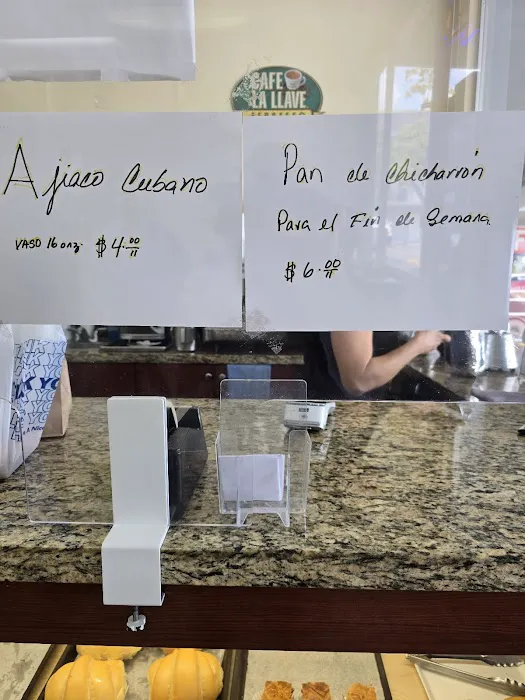 CAFE
LA LLAVE
ESPRESSO
Ajiaco Cubano
VASO 16 onz. $4.00
Pan de Chicharrón
Para el Fin de Semana
$6.00